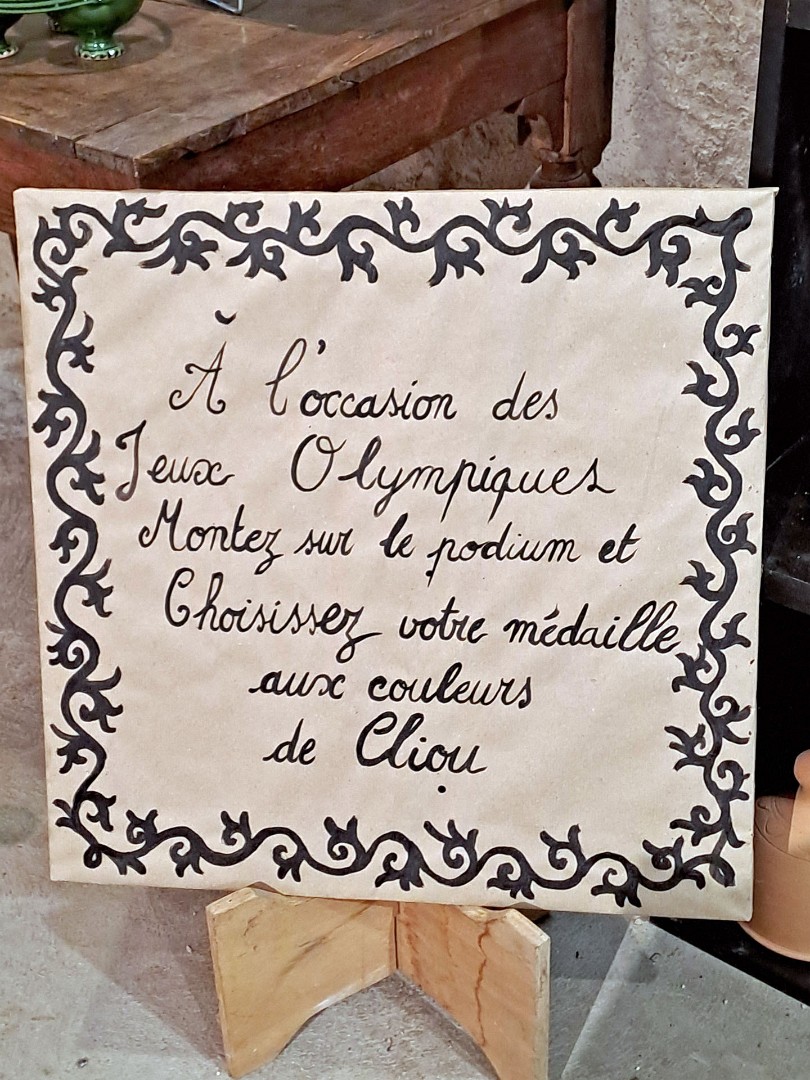 À l'occasion des
Jeux Olympiques
Montez sur le podium et
Choisissez votre médaille
aux couleurs
de Cliou